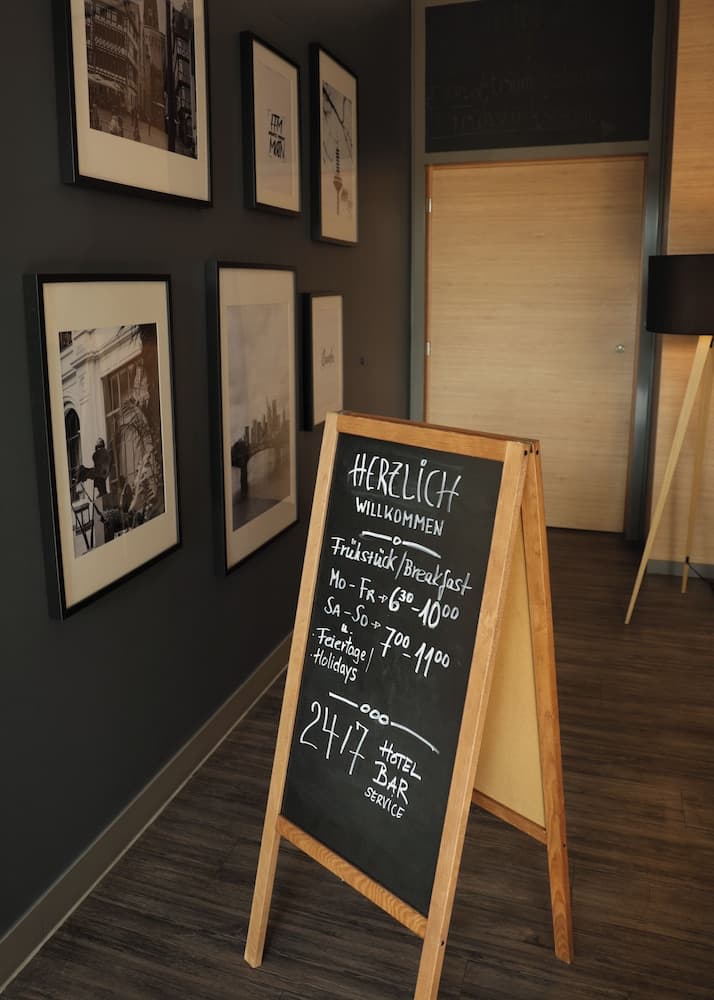 FFM
MAIN
HERZLICH
WILLKOMMEN
Frühstück/Breakfast
Mo - Fr → 6³⁰ - 10⁰⁰
SA - So → 7⁰⁰ - 11⁰⁰
ü.
Feiertage/
Holidays
24/7
HOTEL
BAR
SERVICE